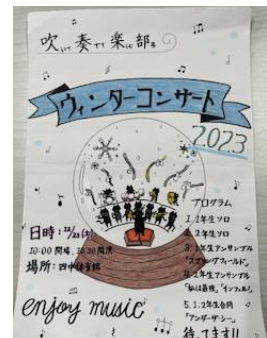 吹いて奏でて楽しむ部♪
ウィンターコンサート
2023
日時:12/23(土)
10:00開場、10:30開演
場所:四中体育館
プログラム
1. 1年生ソロ
2. 2年生ソロ
3. 1年生アンサンブル
「スプリングフィールド」
4. 2年生アンサンブル
「私は最強」「インフェルノ」
5. 1、2年生合同
「アンダー・ザ・シー」
待ってます!!
enjoy music